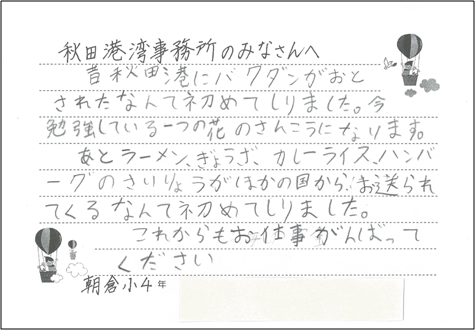 秋田港湾事務所のみなさんへ
昔秋田港にバクダンがおと
されたなんて初めてしりました。今
勉強している一つの花のさんこうになります。
あとラーメン、ぎょうざ、カレーライス、ハンバ
ーグのざいりょうがほかの国から、お送られ
てくるなんて初めてしりました。
これからもお仕事がんばって
ください
朝倉小4年